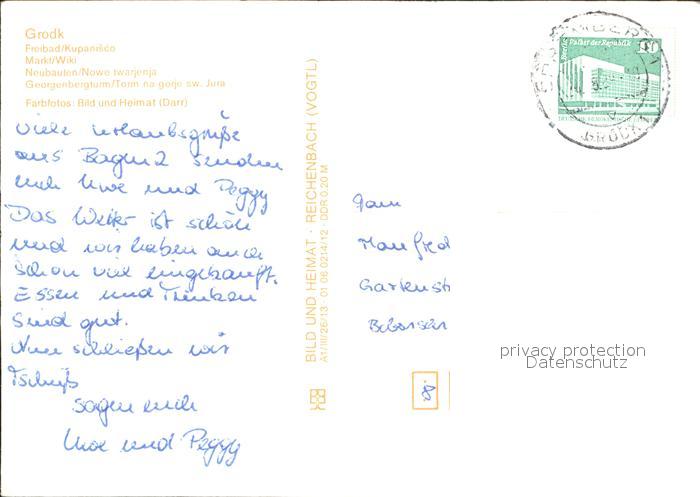 Grodk
Freibad/Kupanišćo
Markt/Wiki
Neubauten/Nowe twarjenja
Georgenbergturm/Torm na gorje sw. Jura
Farbfotos: Bild und Heimat (Darr)
Viele Urlaubsgrüße
aus senden
euch Uwe und Peggy
Das Wetter ist schön
und wir haben auch
schon viel eingekauft.
Essen und Trinken
sind gut.
Nun schließen wir
Tschüß
sagen euch
Uwe und Peggy
BILD UND HEIMAT · REICHENBACH (VOGTL)
A1/III/26/13 01 06 0214/12 DDR 0,20 M
Palast der Republik
10
Berlin
SPREMBERG 1
GRODK 1
Fam
Manfred
Gartenstr
privacy protection
Datenschutz